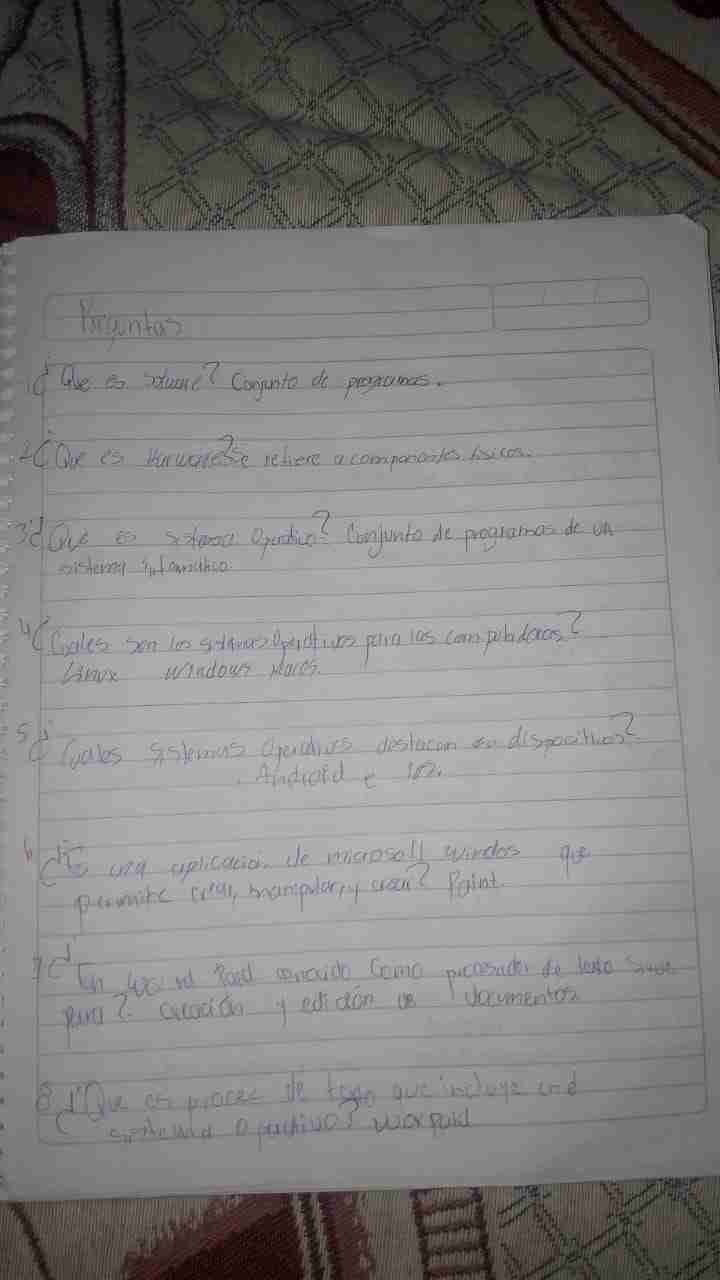 Preguntas
1¿ Que es sotware? Conjunto de programas.
2¿Que es Harware? Se refiere a componentes fisicos.
3¿Que es sistema Operativo? Conjunto de programas de un
sistema informatico.
4¿Cuales son los sistemas Operativos para las computadoras?
Linux Windows Macos.
5¿ Cuales Sistemas Operativos destacan en dispocitivos?
Android e IOS.
6¿Es una aplicacion de microsoft windos que
permite crear, manipular, y crear? Paint.
7¿En Word Pad conocido Como procesador de texto Sirve
para? creación y edición de documentos
8¿Que es proces de que incluye und
sistema Operativo? Worpad